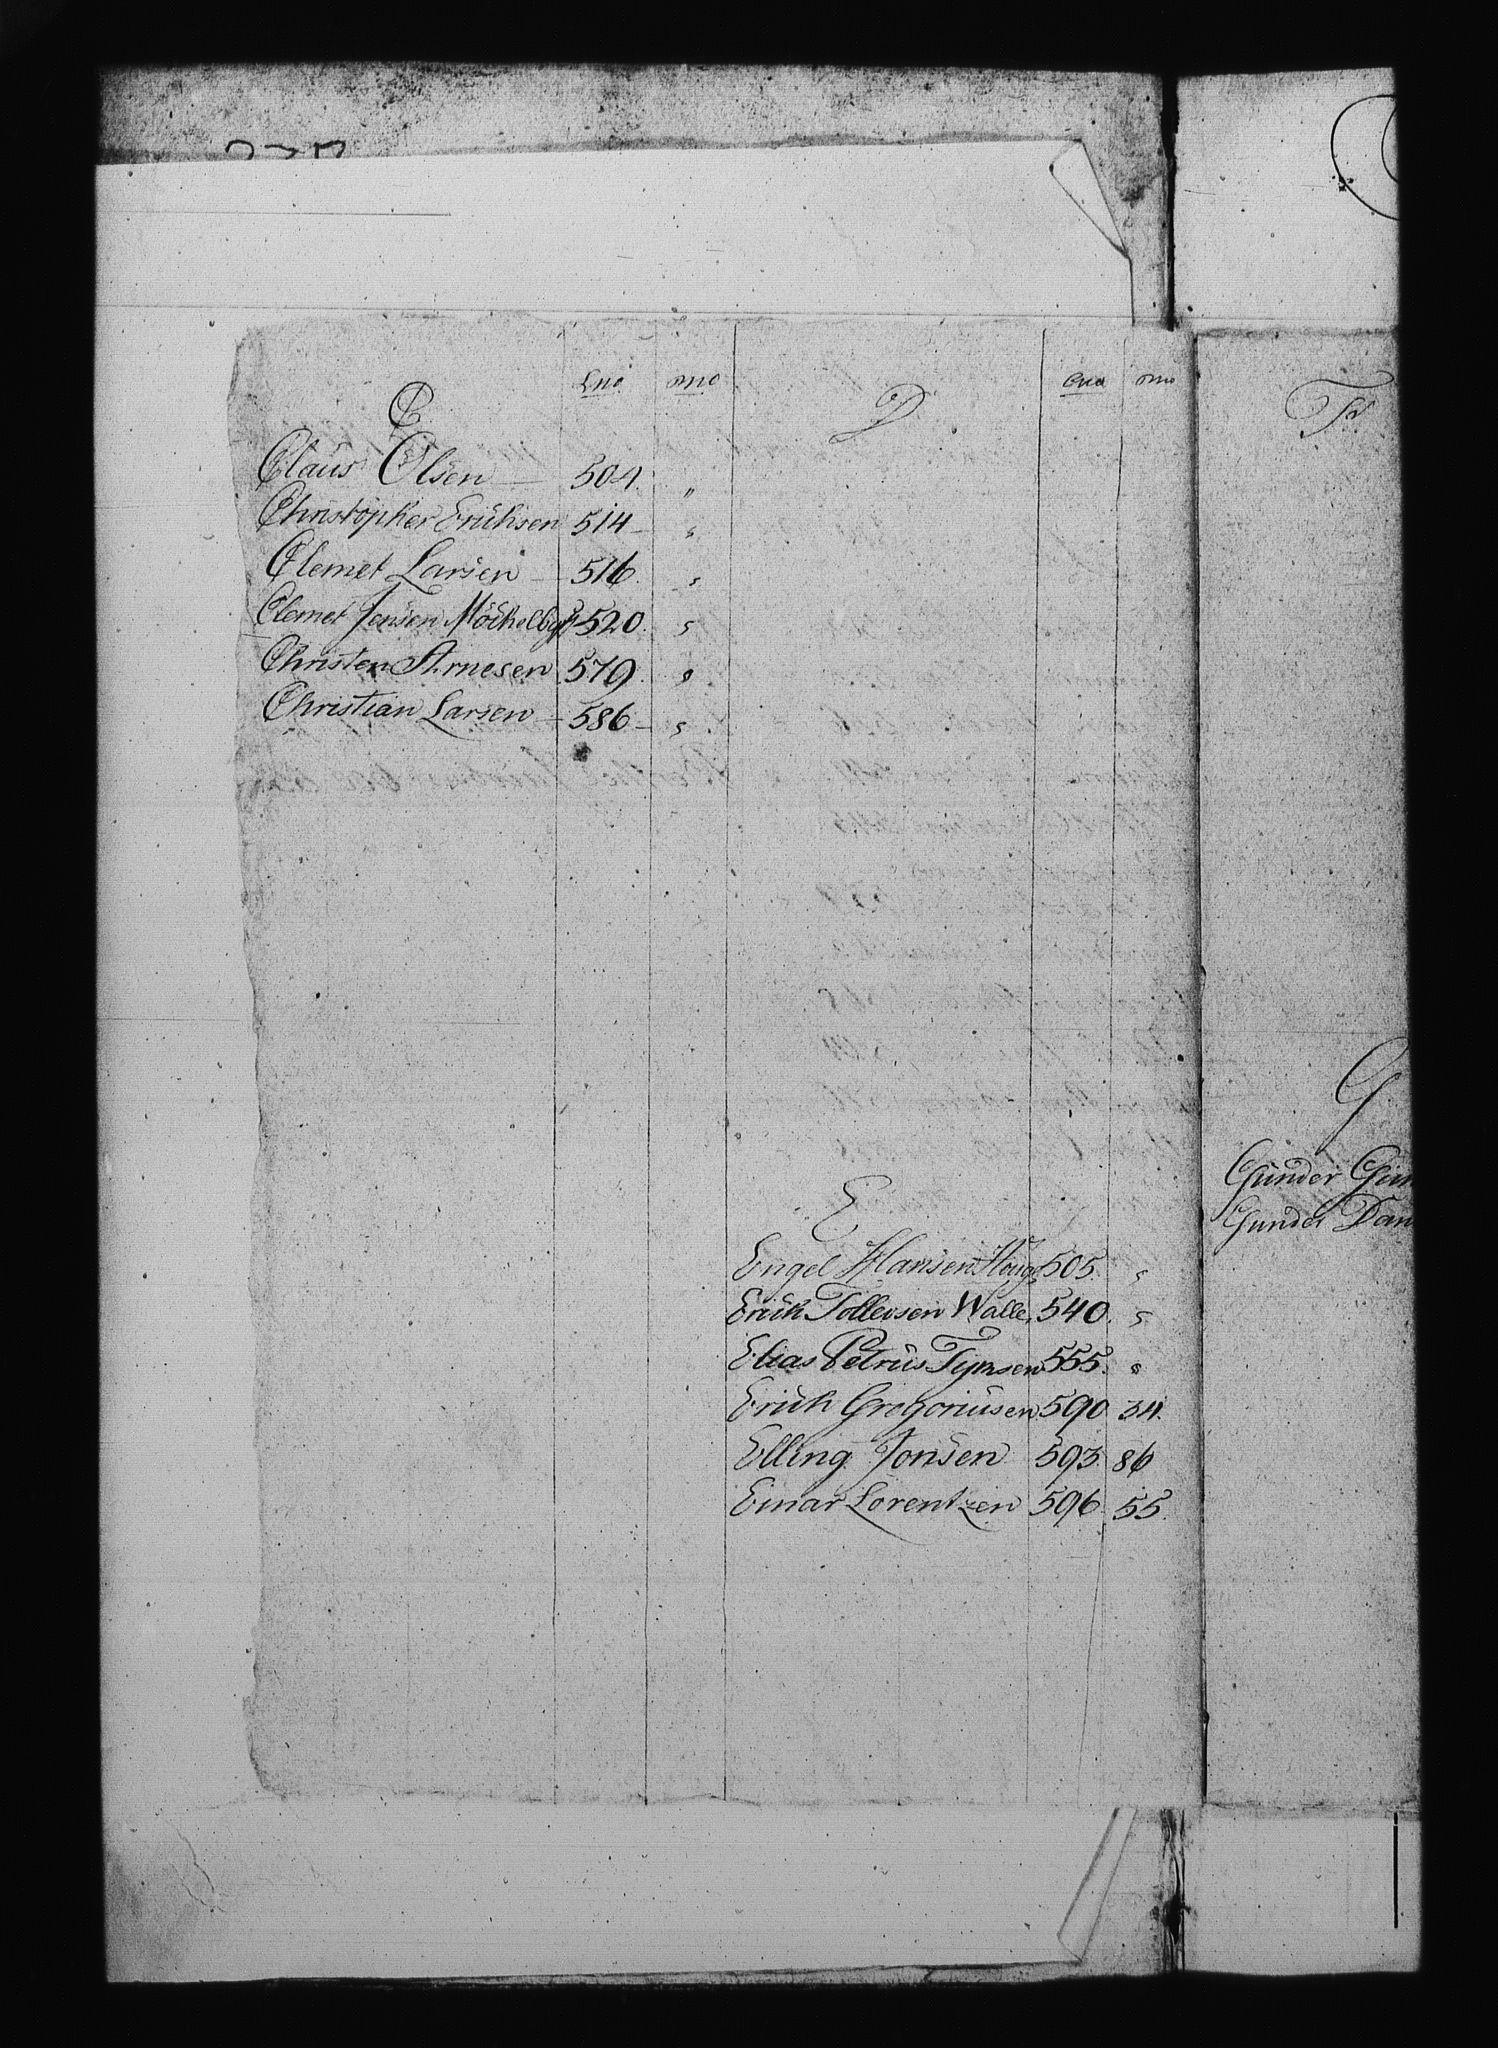 C
Lno Mno
Claus Olsen — 504. "
Christopher Erichsen 514 — "
Clemet Larsen — 516. "
Clemet Jensen 520. "
Christen Arnesen 579. "
Christian Larsen — 586 — "
D
Lno Mno
E
Engel Hansen Houg 505. "
Erich Tollevsen Walle. 540. "
Elias Petrus Tymsen 555. "
Erich Gregoriusen 590 34.
Elling Jonsen 593. 86
Einar Lorentzen 596. 55.
F
G
Gunder
Gunder Dan